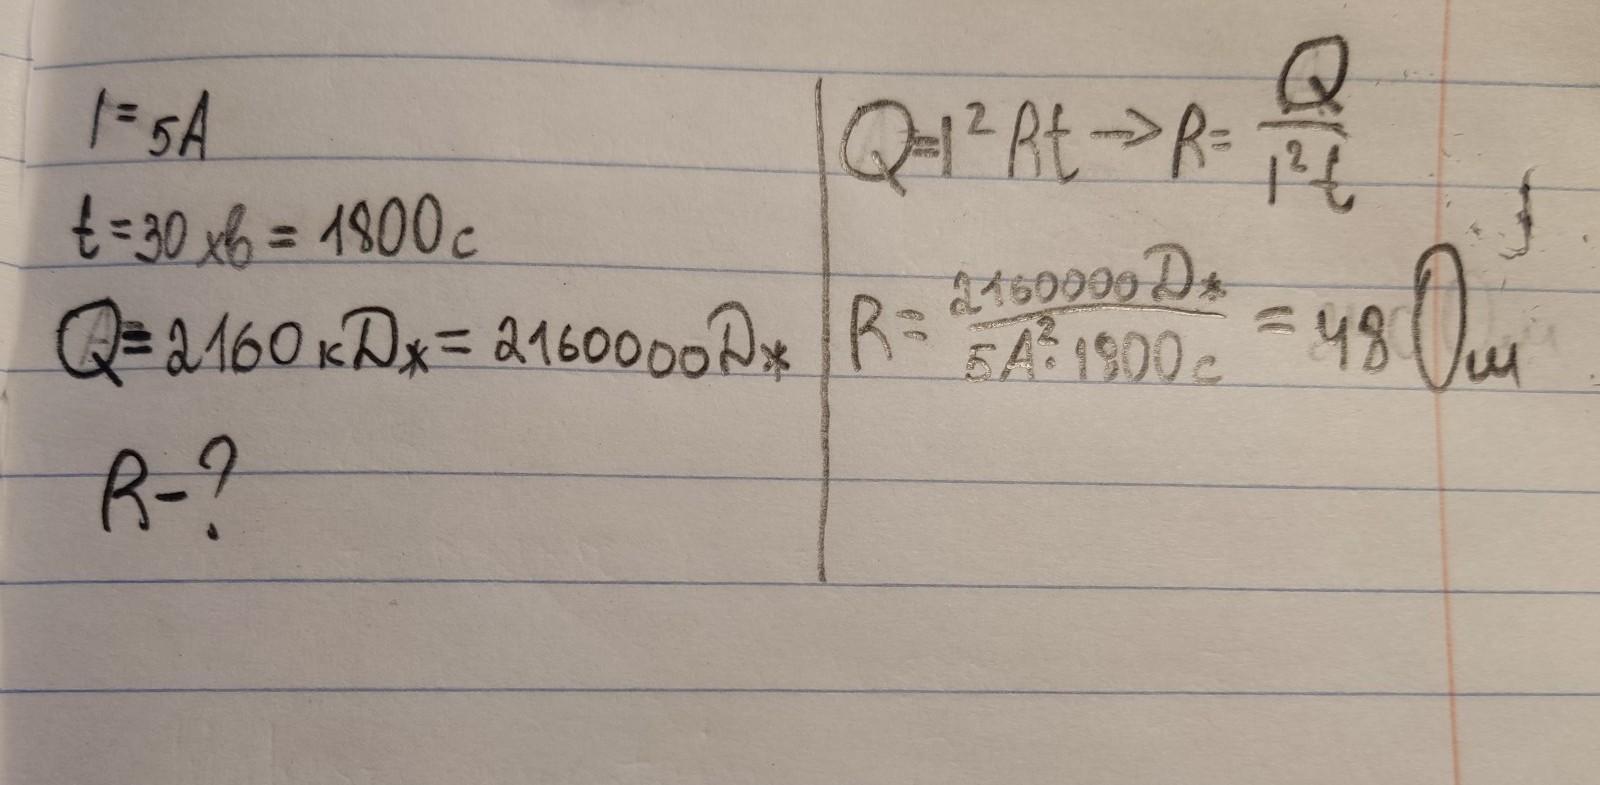 I = 5A
t = 30 хв = 1800 с
Q = 2160 кДж = 2160000 Дж
R - ?
Q = I² Rt → R = Q / I² t
R = 2160000 Дж / 5A² · 1800 с = 48 Ом